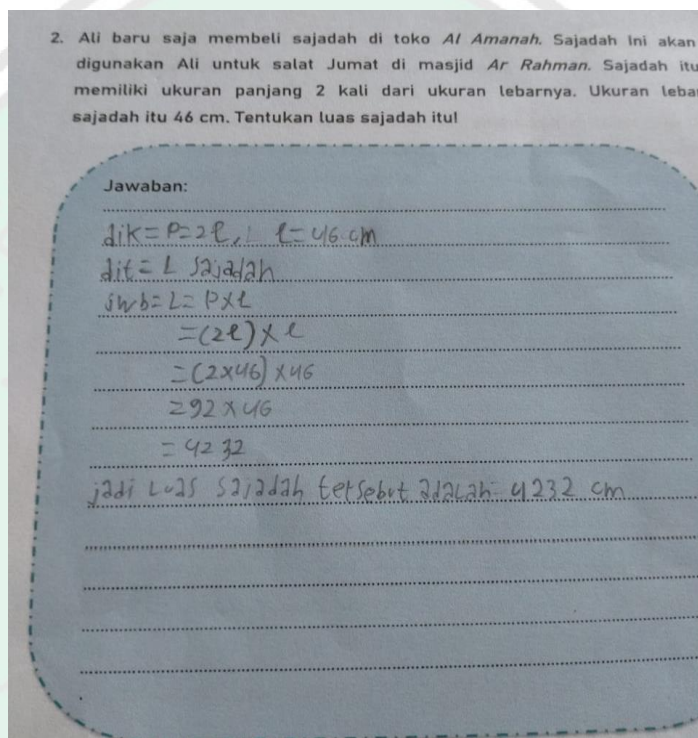 2. Ali baru saja membeli sajadah di toko Al Amanah. Sajadah ini akan
digunakan Ali untuk salat Jumat di masjid Ar Rahman. Sajadah itu
memiliki ukuran panjang 2 kali dari ukuran lebarnya. Ukuran leba
sajadah itu 46 cm. Tentukan luas sajadah itu!
Jawaban:
dik = P = 2l, l = 46 cm
dit = L sajadah
jwb = L = P x l
= (2l) x l
= (2x46) x 46
= 92 x 46
= 4232
jadi Luas sajadah tersebut adalah = 4232 cm